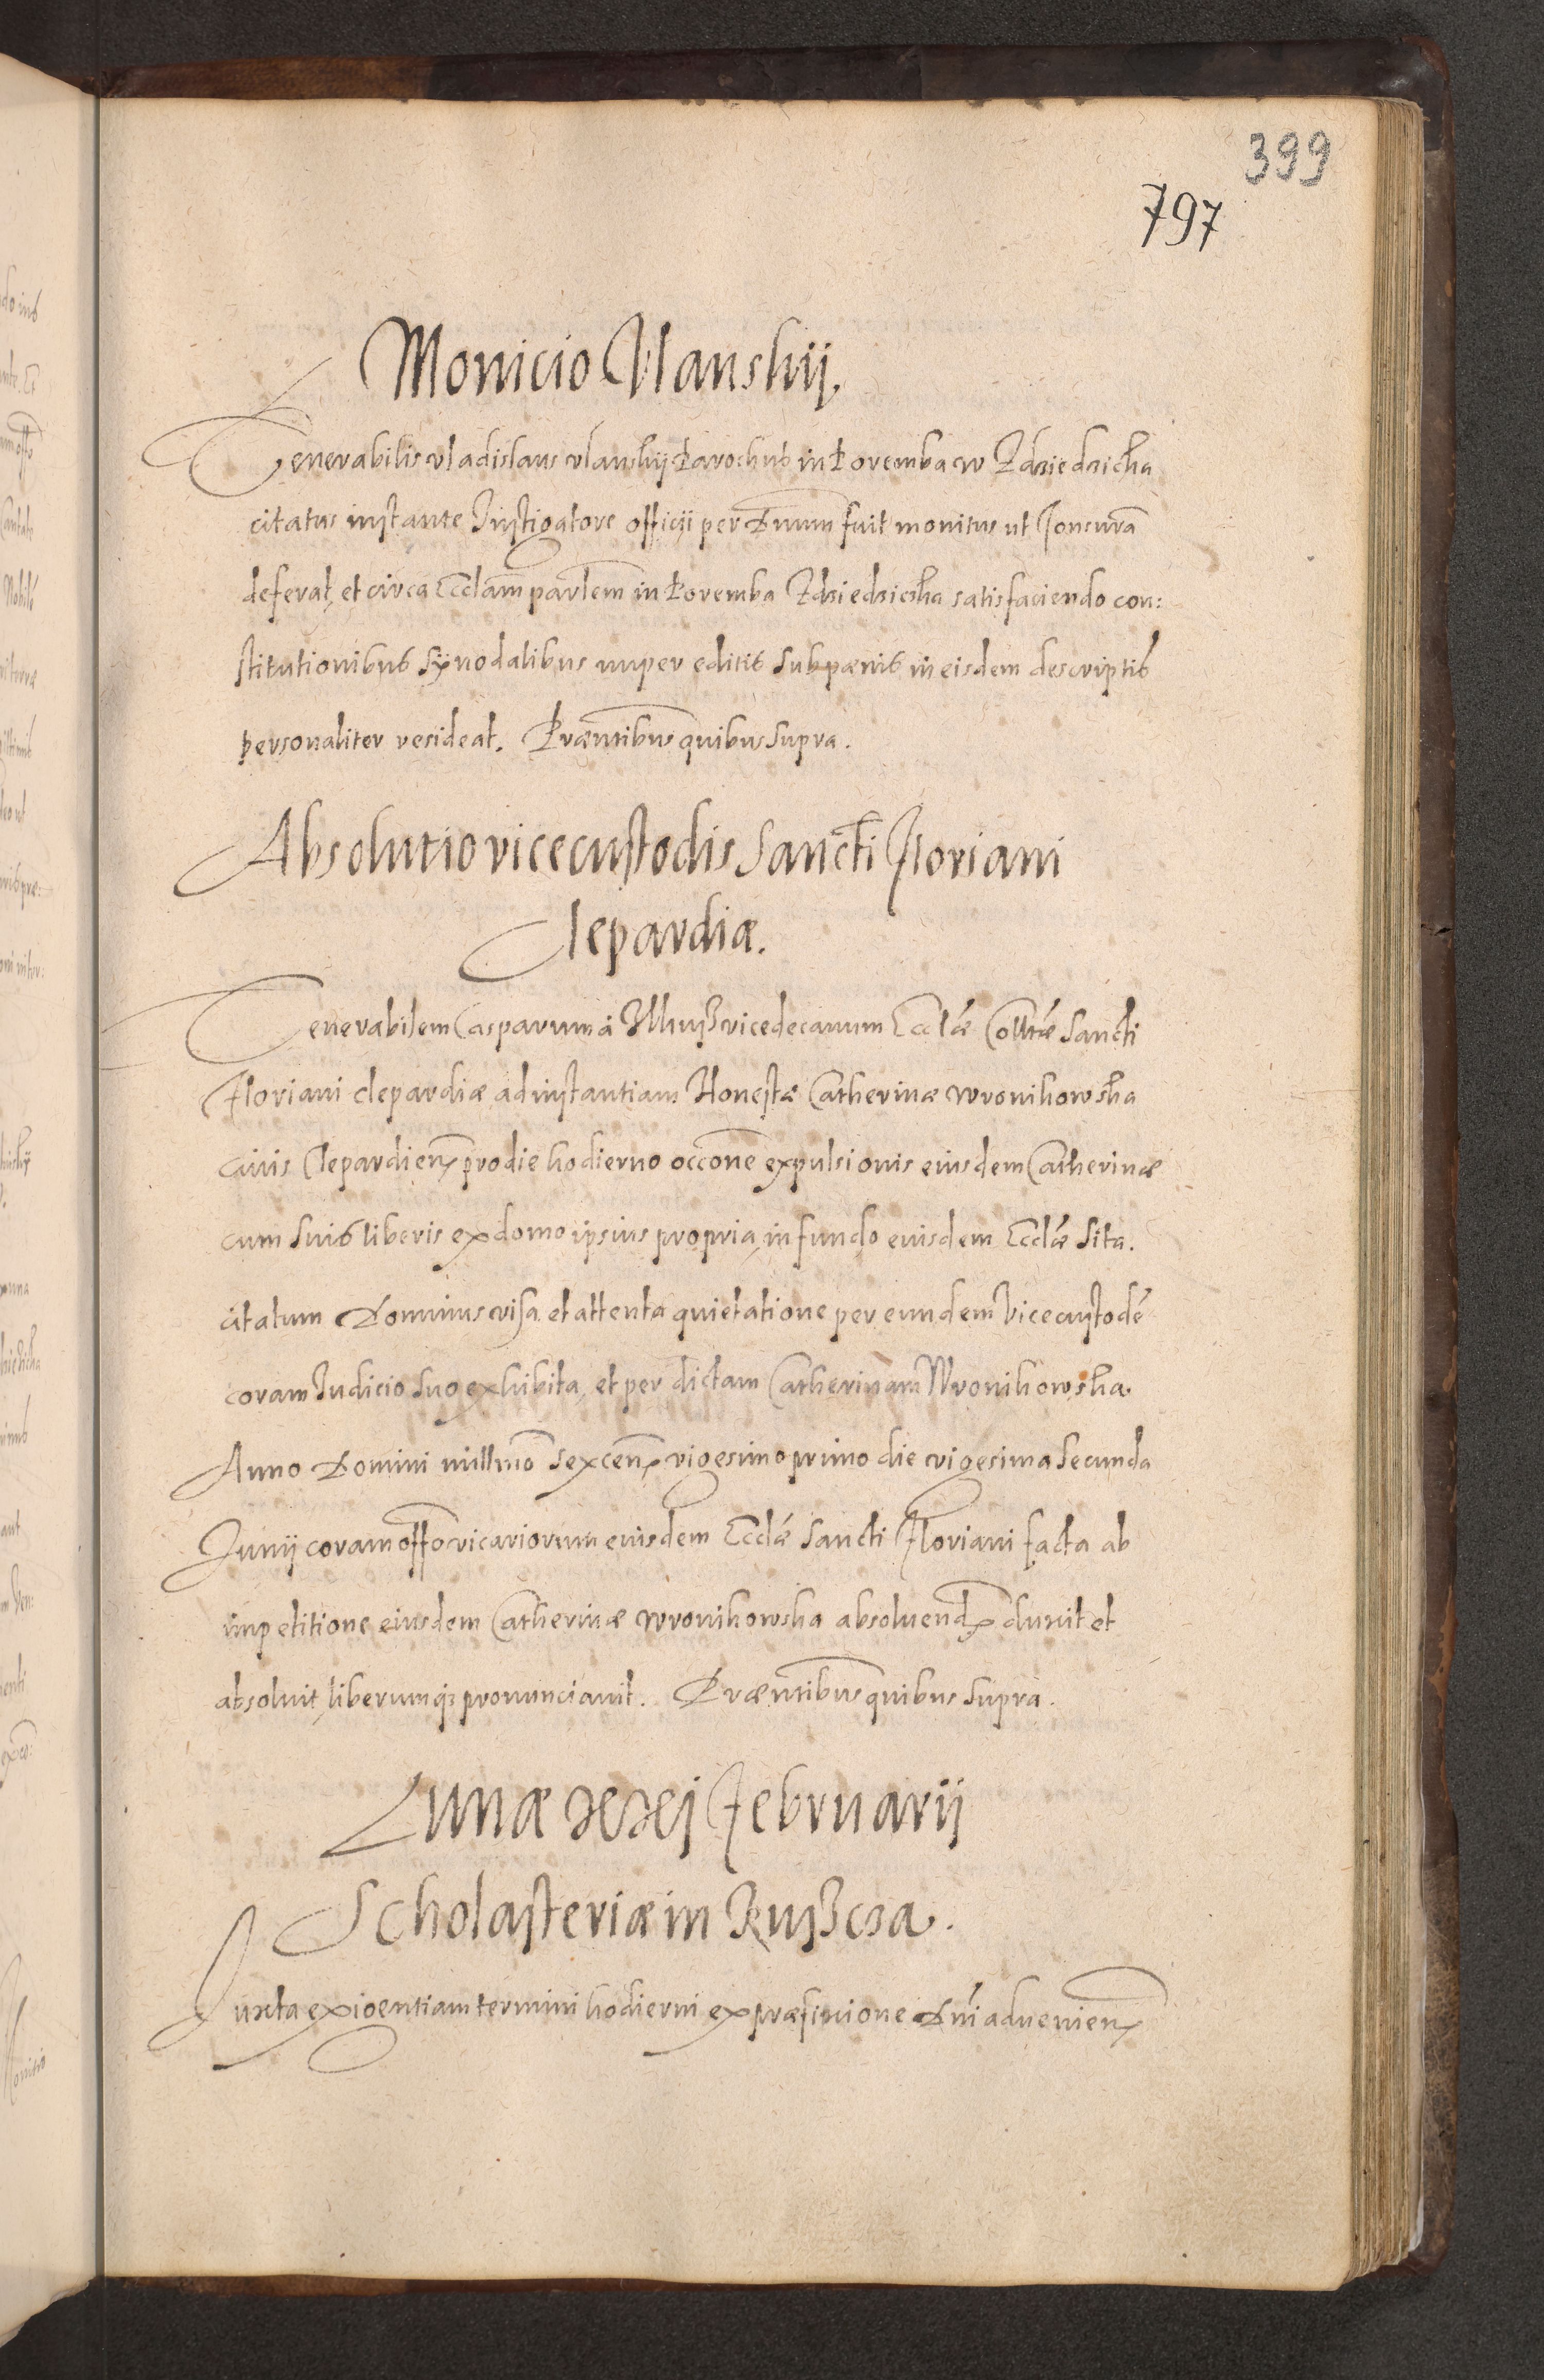 399
797
Monicio Ulanskij.
Venerabilis Vladislaus Ulanskij Parochus in Poremba cw Zdziedzicka
citatus instante Instigatore officij per Dnum fuit monitus ut Tonsurã
deferat, et circa Eccl̃am parlem̃ in Poremba Zdziedzicka satisfaciendo con:
stitutionibus Synodalibus nuper editis sub pænis in eisdem descriptis
personaliter resideat. Præñtibus quibus supra.
Absolutio vicecustodis Sancti Floriani
Clepardiæ.
Venerabilem Casparum à vicedecanum Eccl̃æ Collt̃æ Sancti
Floriani clepardiæ ad instantiam Honestæ Catherinæ Wronikowska
civis Clepardieñ pro die hodierno occõne expulsionis eiusdem Catherinæ
cum suis liberis ex domo ipsius propria, in fundo eiusdem Eccl̃æ sita.
citatum Dominus visa et attenta quietatione per eundem Vicecustodẽ
coram Judicio suo exhibita, et per dictam Catherinam Wronikowska.
Anno Domini millmõ sexceñ vigesimo primo die vigesima secunda
Junij coram offõ vicariorum eiusdem Eccl̃æ Sancti Floriani facta ab
impetitione eiusdem Catherinæ Wronikowska absoluend̃ duxit et
absoluit, liberumq; pronunciauit. Præñtibus quibus supra.
Lunæ xxj Februarij
Scholasteriæ in Rußcza.
Juxta exigentiam termini hodierni ex præfinicione Dñi advenieñ